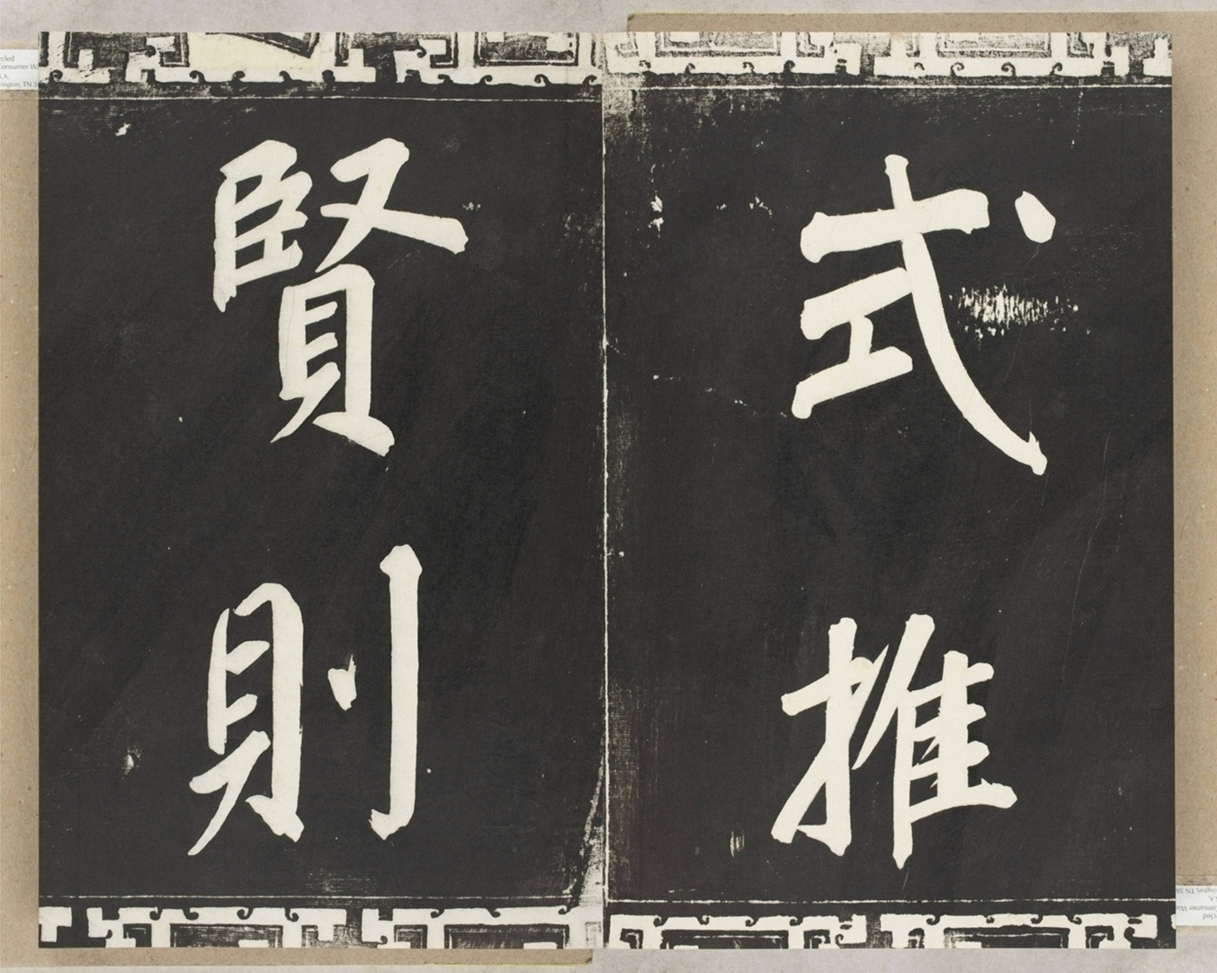 式推
賢則